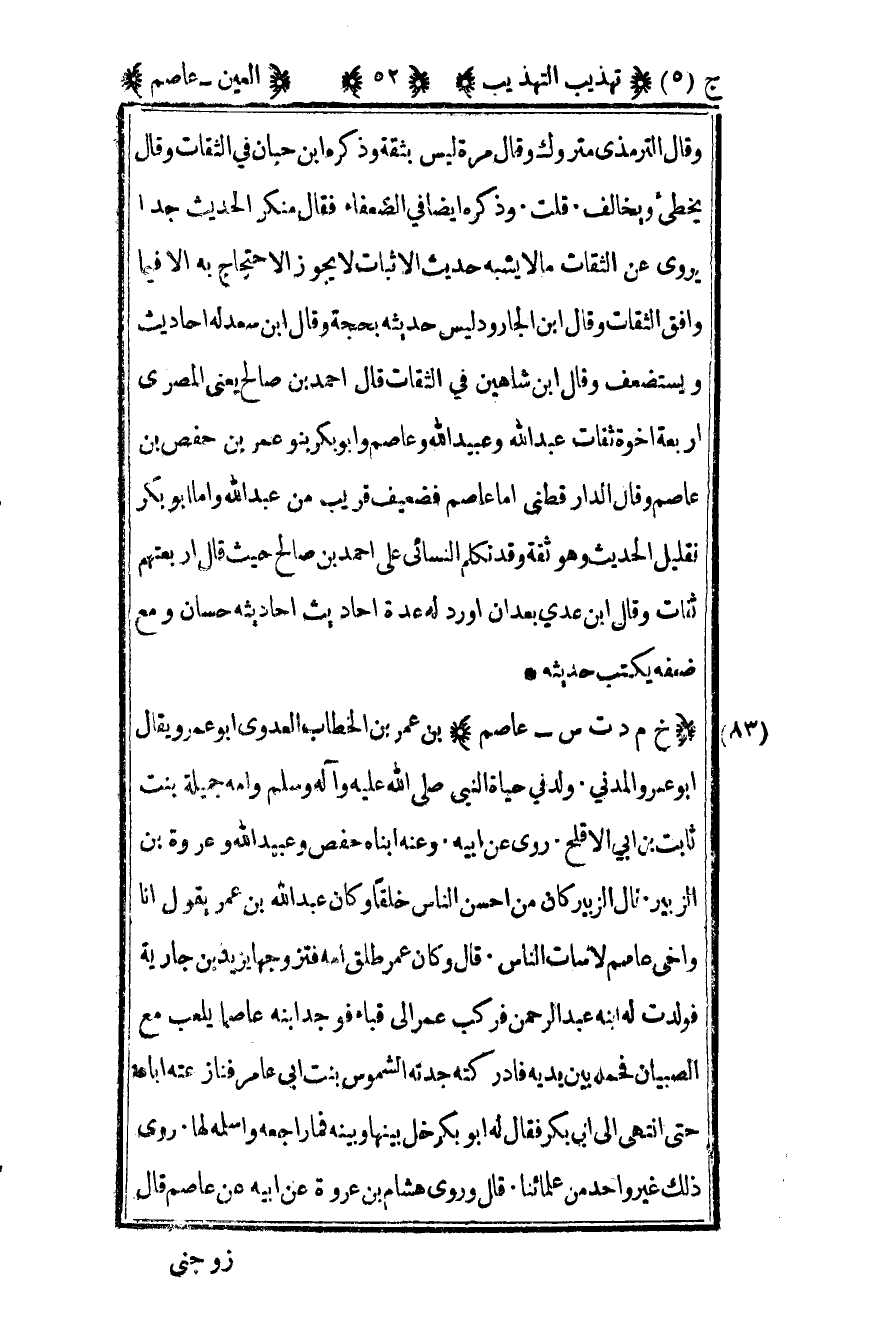 ج (٥) ﴿ تهذيب التهذيب ﴾ ﴿ ٥٢ ﴾ ﴿ العين ـ عاصم ﴾
وقال الترمذى متروك وقال مرة ليس بثقة وذكره ابن حبان في الثقات وقال
يخطئ ويخالف · قلت · وذكره ايضا في الضعفاء فقال منكر الحديث جدا
يروى عن الثقات مالا يشبه حديث الاثبات لا يجوز الاحتجاج به الا فيما
وافق الثقات وقال ابن الجارود ليس حديثه بحجة وقال ابن سعد له احاديث
ويستضعف وقال ابن شاهين في الثقات قال احمد بن صالح يعنى المصرى
اربعة اخوة ثقات عبد الله وعبيد الله وعاصم وابو بكر بنو عمر بن حفص بن
عاصم وقال الدار قطنى اما عاصم فضعيف قريب من عبد الله واما ابو بكر
نقليل الحديث وهو ثقة وقد تكلم النسائى على احمد بن صالح حيث قال اربعتهم
ثقات وقال ابن عدي بعد ان اورد له عدة احاديث احاديثه حسان ومع
ضعفه يكتب حديثه •
(٨٣) ﴿ خ م د ت س ـ عاصم ﴾ بن عمر بن الخطاب العدوى ابو عمر ويقال
ابو عمرو المدني · ولد في حياة النبى صلى الله عليه وآله وسلم وامه جميلة بنت
ثابت بن ابي الاقلح · روى عن ابيه · وعنه ابناه حفص وعبيد الله وعروة بن
الزبير · نال الزبير كان من احسن الناس خلقاً وكان عبد الله بن عمر يقول انا
واخى عاصم لانسات الناس · قال وكان عمر طلق امه فتزوجها يزيد بن جارية
فولدت له ابنه عبد الرحمن فركب عمر الى قباء فوجد ابنه عاصما يلعب مع
الصبيان فحمله بين يديه فادركته جدته الشموس بنت ابى عامر فنازعته اياه
حتى انتهى الى ابى بكر فقال له ابو بكر خل بينها وبينه فما راجعه واسلمه لها · روى
ذلك غير واحد من علمائنا · قال وروى هشام بن عروة عن ابيه عن عاصم قال
زوجنى